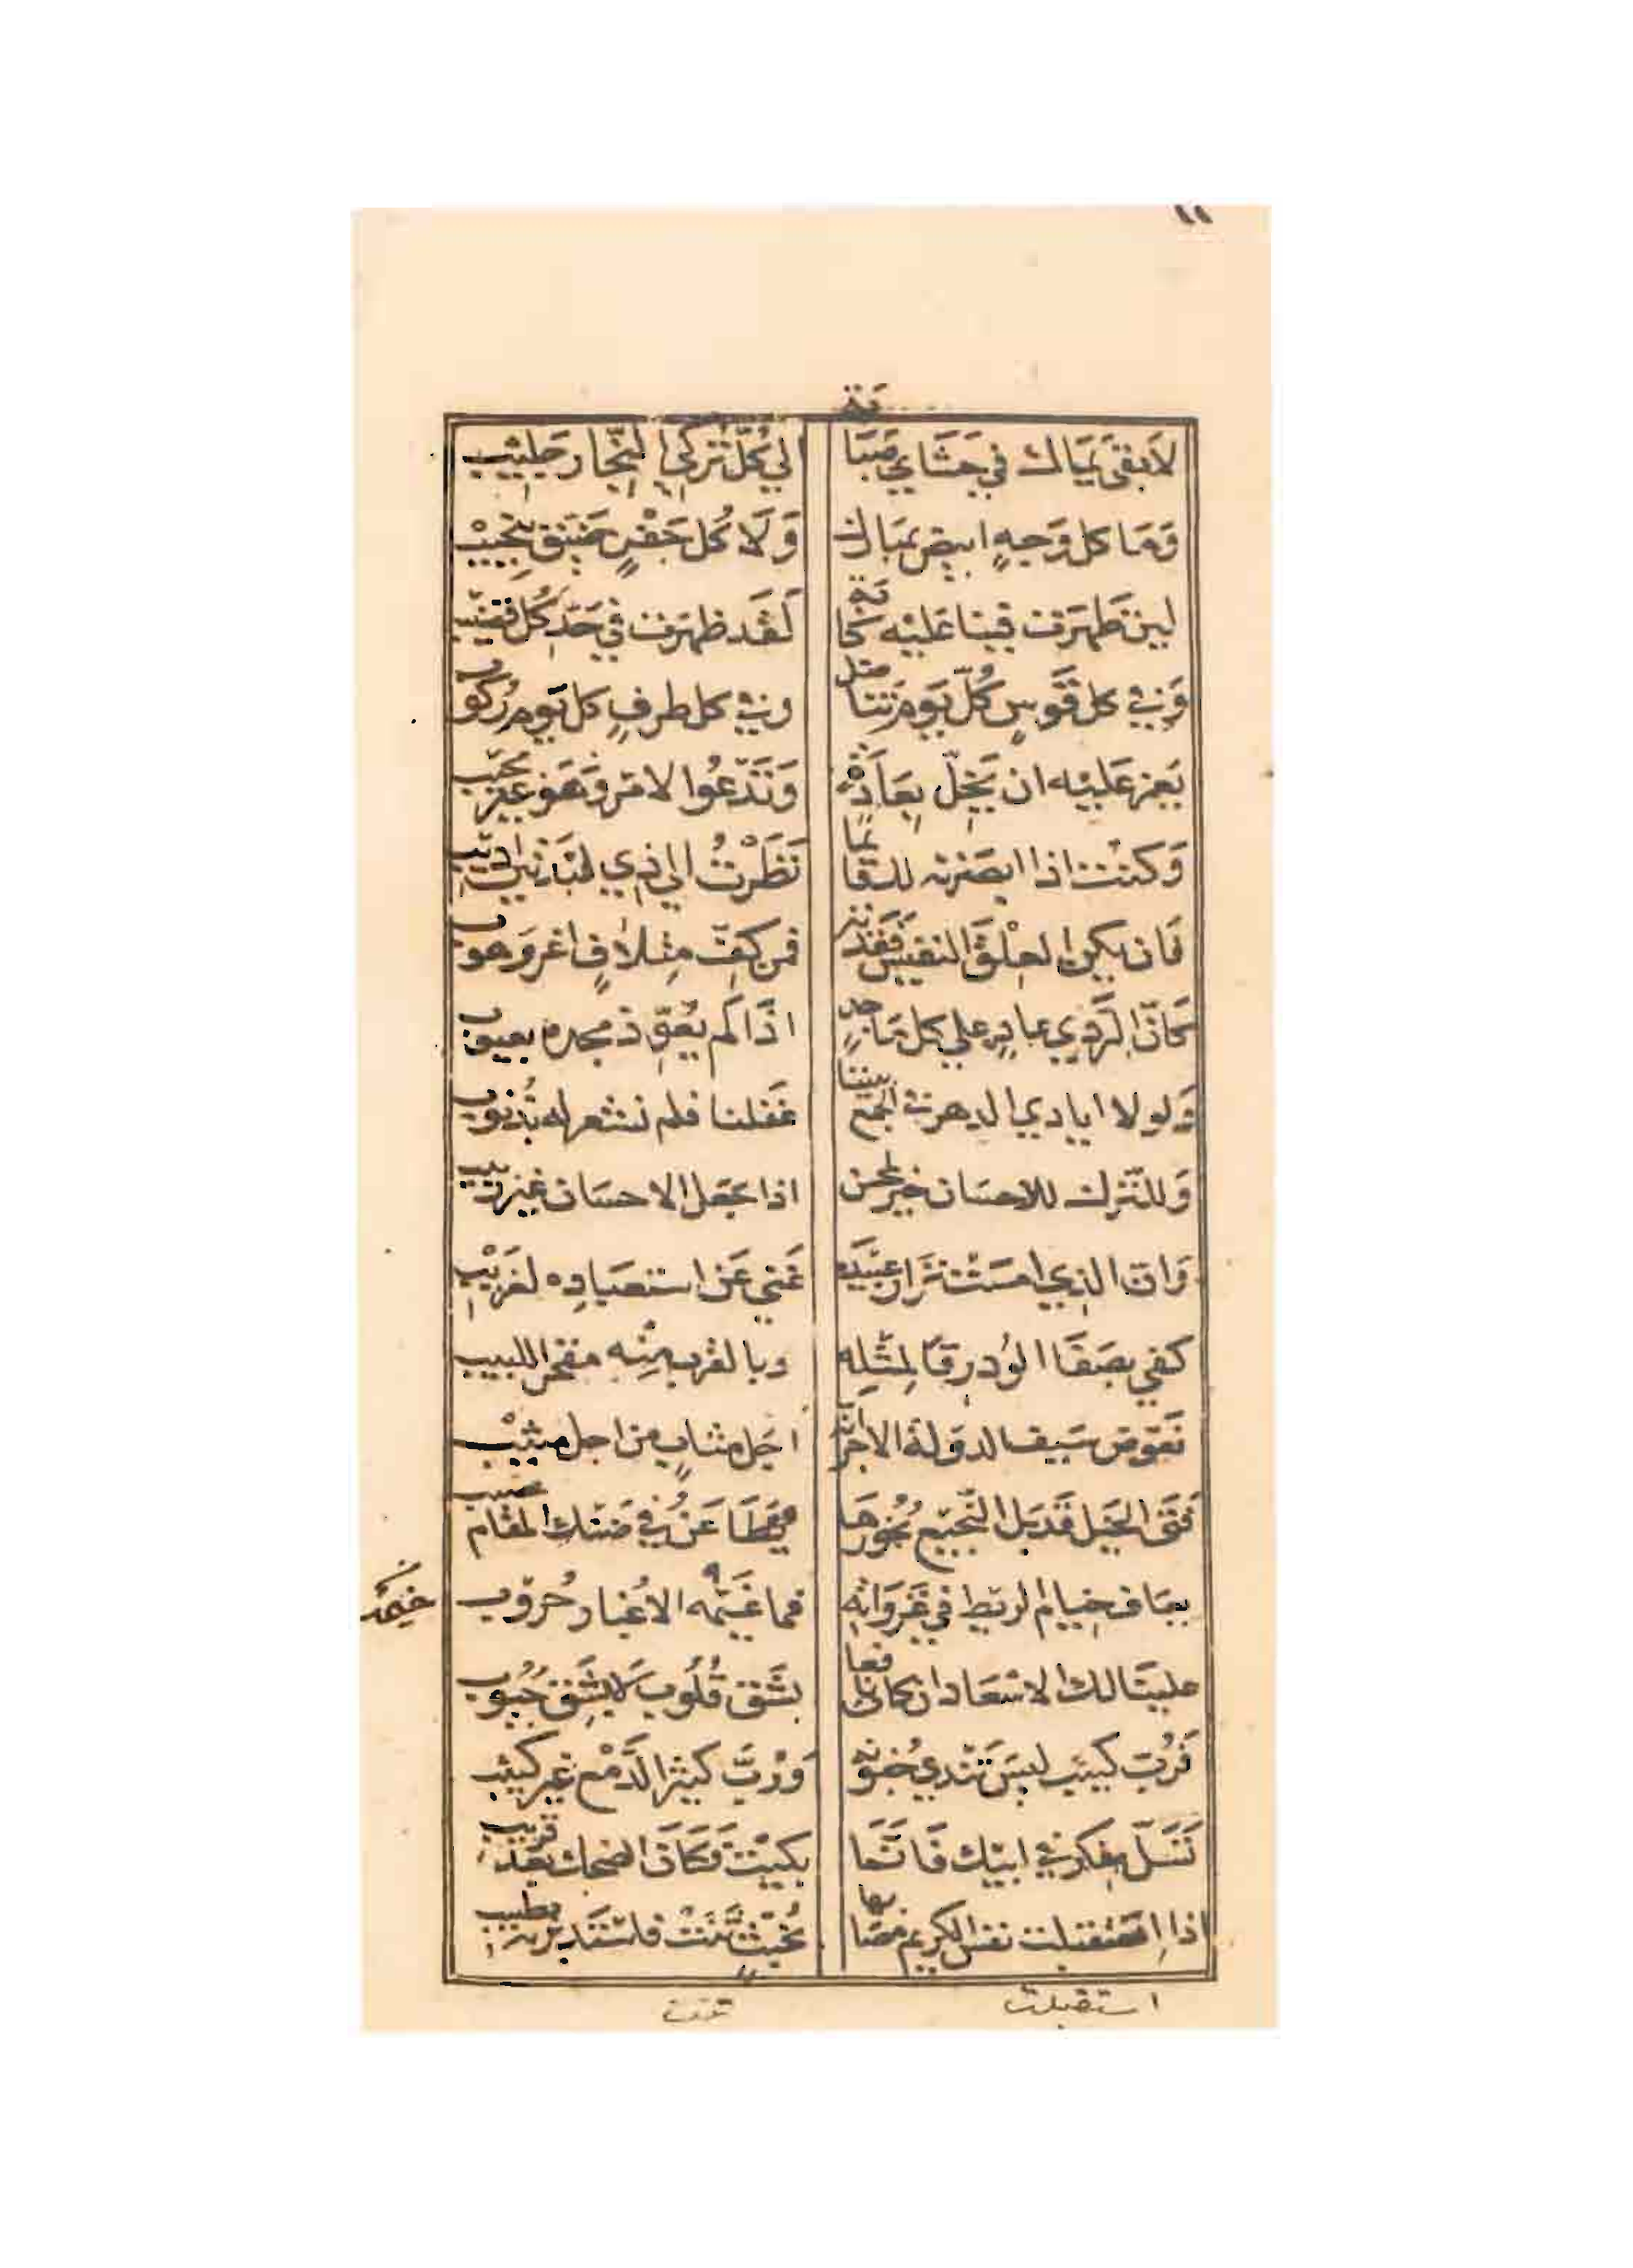 ١١
لابقى يماك في حشاي صبابة الي كل تركي النجار جليب
وما كل وجه ابيض بمبارك ولا كل جفن ضيق بنجيب
لين ظهرت فينا عليه كابة لقد ظهرت في حد كل قضيب
وفي كل قوس كل يوم تناضل وفي كل طرف كل يوم ركوب
يعز عليه ان يخل بعادة وتدعوا لامر وهو غير مجيب
وكنت اذا ابصرته لك قائما نظرت الي ذي لبدتين اديب
فان يكن العلق النفيس فقدته فمن كف متلاف اغر وهوب
كان الردي عاد علي كل ماجد اذا لم يعوذ مجده بعيوب
ولولا ايادي الدهر في الجمع بيننا غفلنا فلم نشعر له بذنوب
وللترك للاحسان خير لمحسن اذا جعل الاحسان غير ربيب
وان الذي امست نزار عبيده غني عن استعباده لغريب
كفي بصفا الود رقا لمثله وبالقرب منه مفخرا للبيب
فعوض سيف الدولة الاجر انه اجل مثاب من اجل مثيب
فتى الخيل قد بل النجيع نحورها يطاعن في ضنك المقام عصيب
يعاف خيام الريط في غزواته فما خيمه الا غبار حروب
خيمه
علينا لك الاسعاد ان كان نافعا بشق قلوب لا بشق جيوب
فرب كييب ليس تندي جفونه ورب كثير الدمع غير كييب
تسل بفكر في ابيك فانما بكيت فكان الضحك بعد قريب
اذا استقبلت نفس الكريم مصابها بخبث ثنت فاستدبرته بطيب
استقبلت ثنت